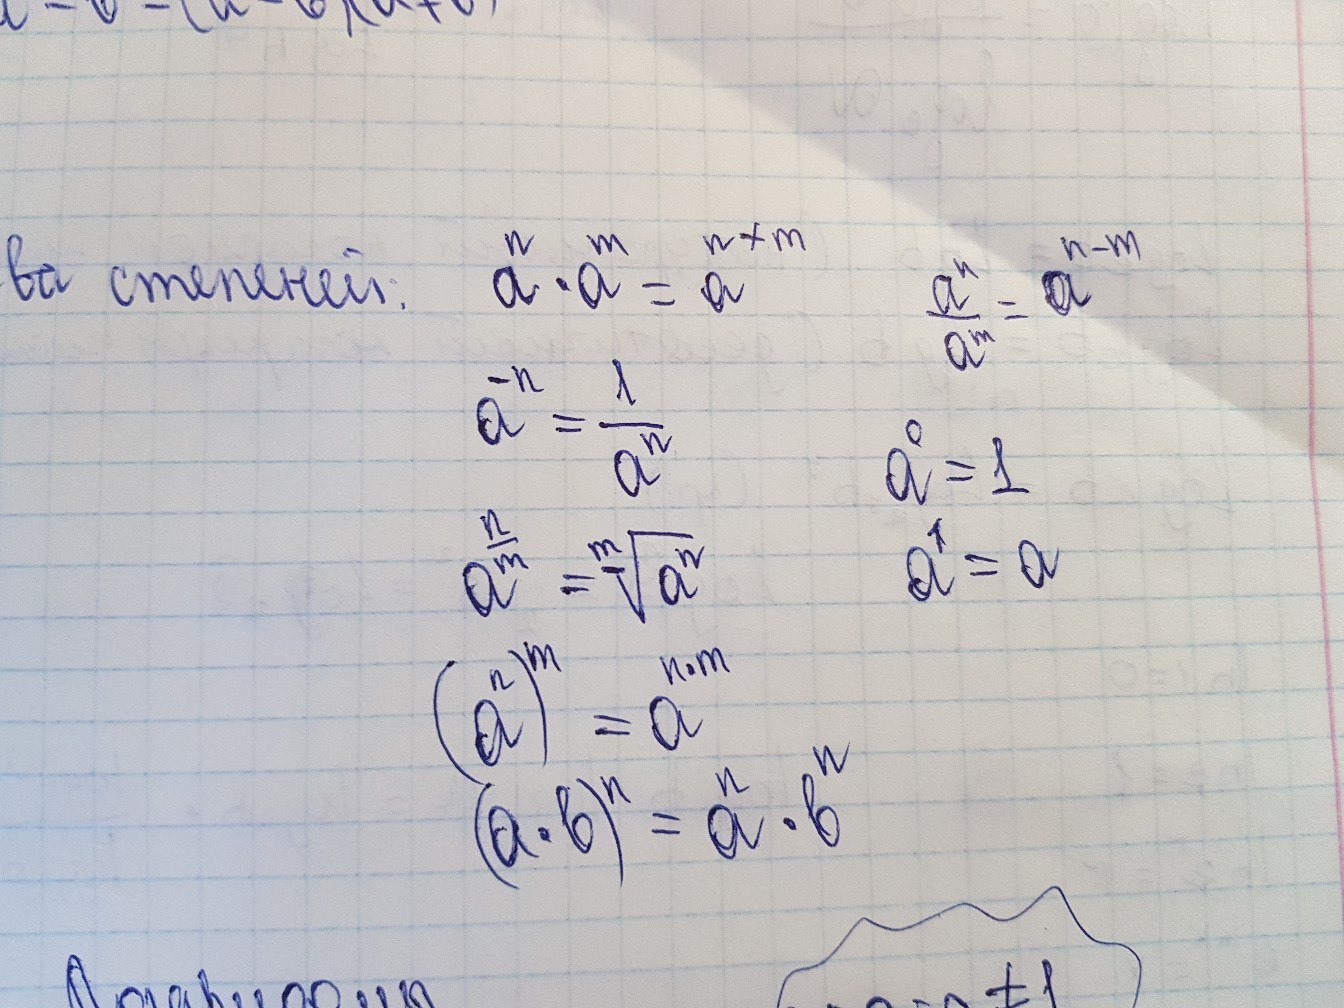 ва степеней: aⁿ · aᵐ = aⁿ⁺ᵐ aⁿ/aᵐ = aⁿ⁻ᵐ
a⁻ⁿ = 1/aⁿ a⁰ = 1
a^(n/m) = ᵐ√(aⁿ) a¹ = a
(aⁿ)ᵐ = a^(n·m)
(a·b)ⁿ = aⁿ · bⁿ